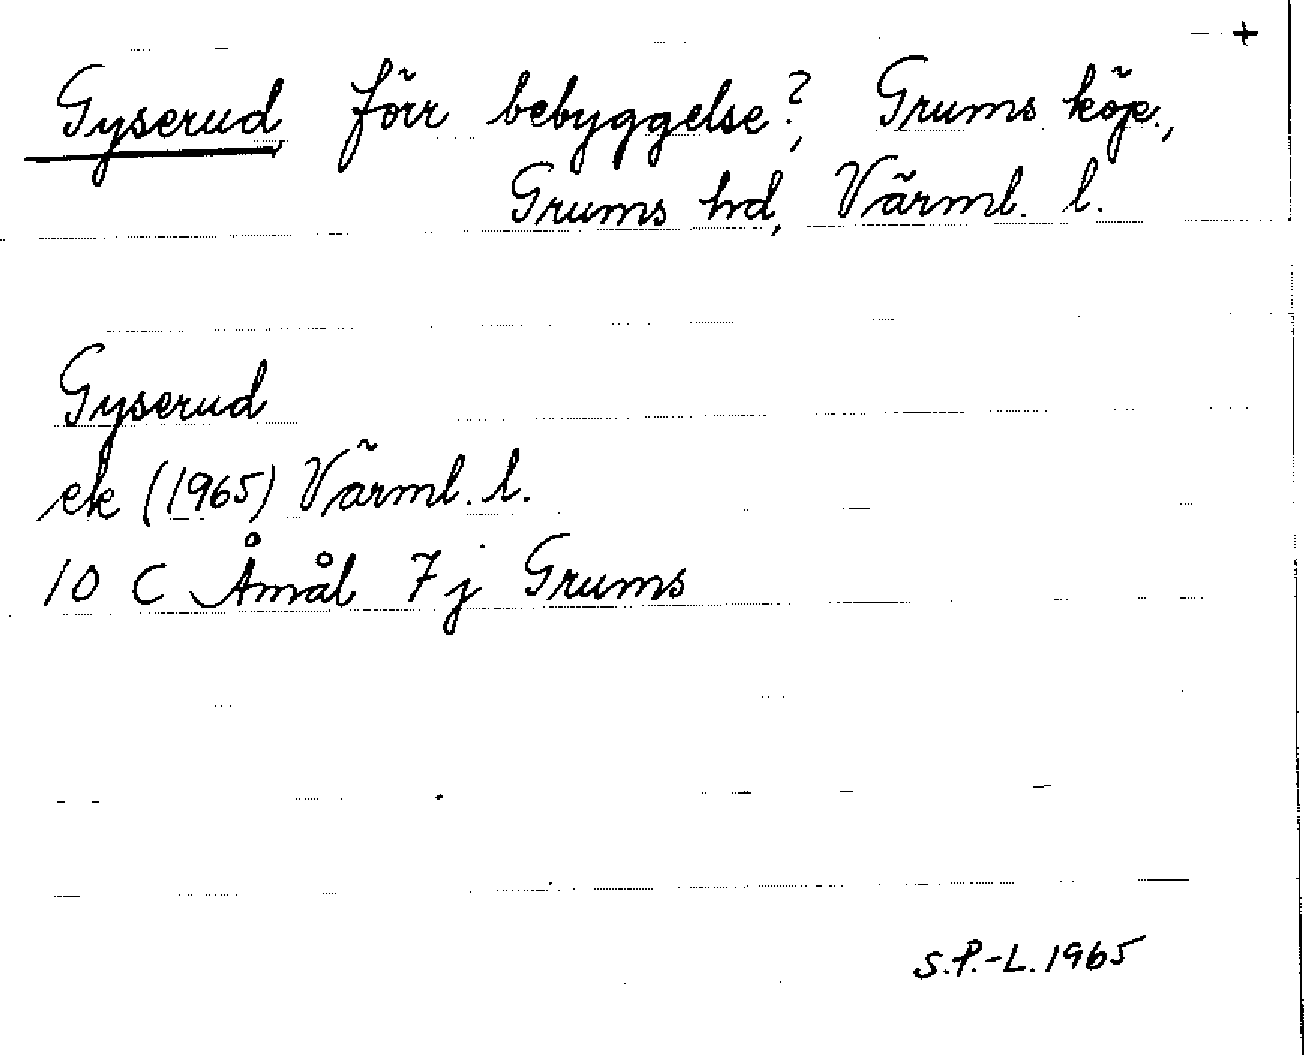 +
Gyserud förr bebyggelse?, Grums köp.,
Grums hd, Värml. l.
Gyserud
ek (1965) Värml. l.
10 C Åmål 7 j Grums
S.P.-L. 1965